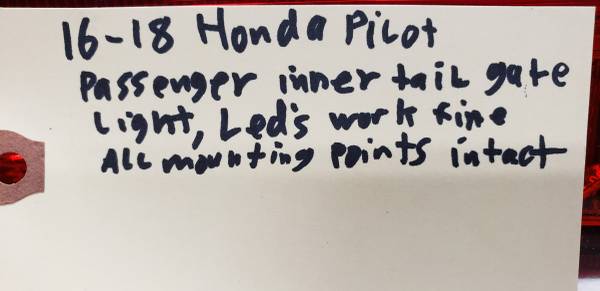 16-18 Honda Pilot
Passenger inner tail gate
Light, Led's work fine
All mounting points intact